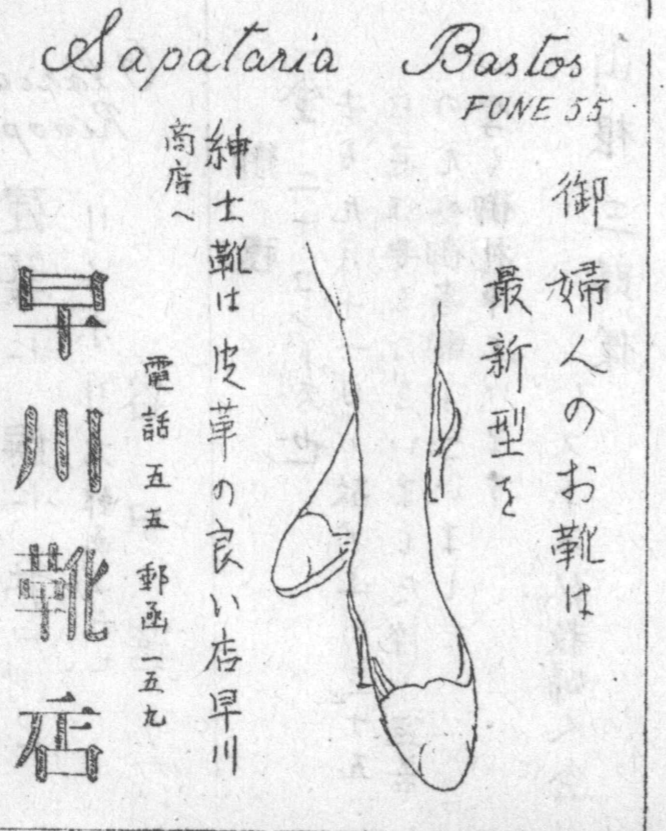 Sapataria Bastos
FONE 55
御婦人のお靴は
最新型を
紳士靴は皮革の良い店早川
商店へ
電話五五 郵函一五九
早川靴店